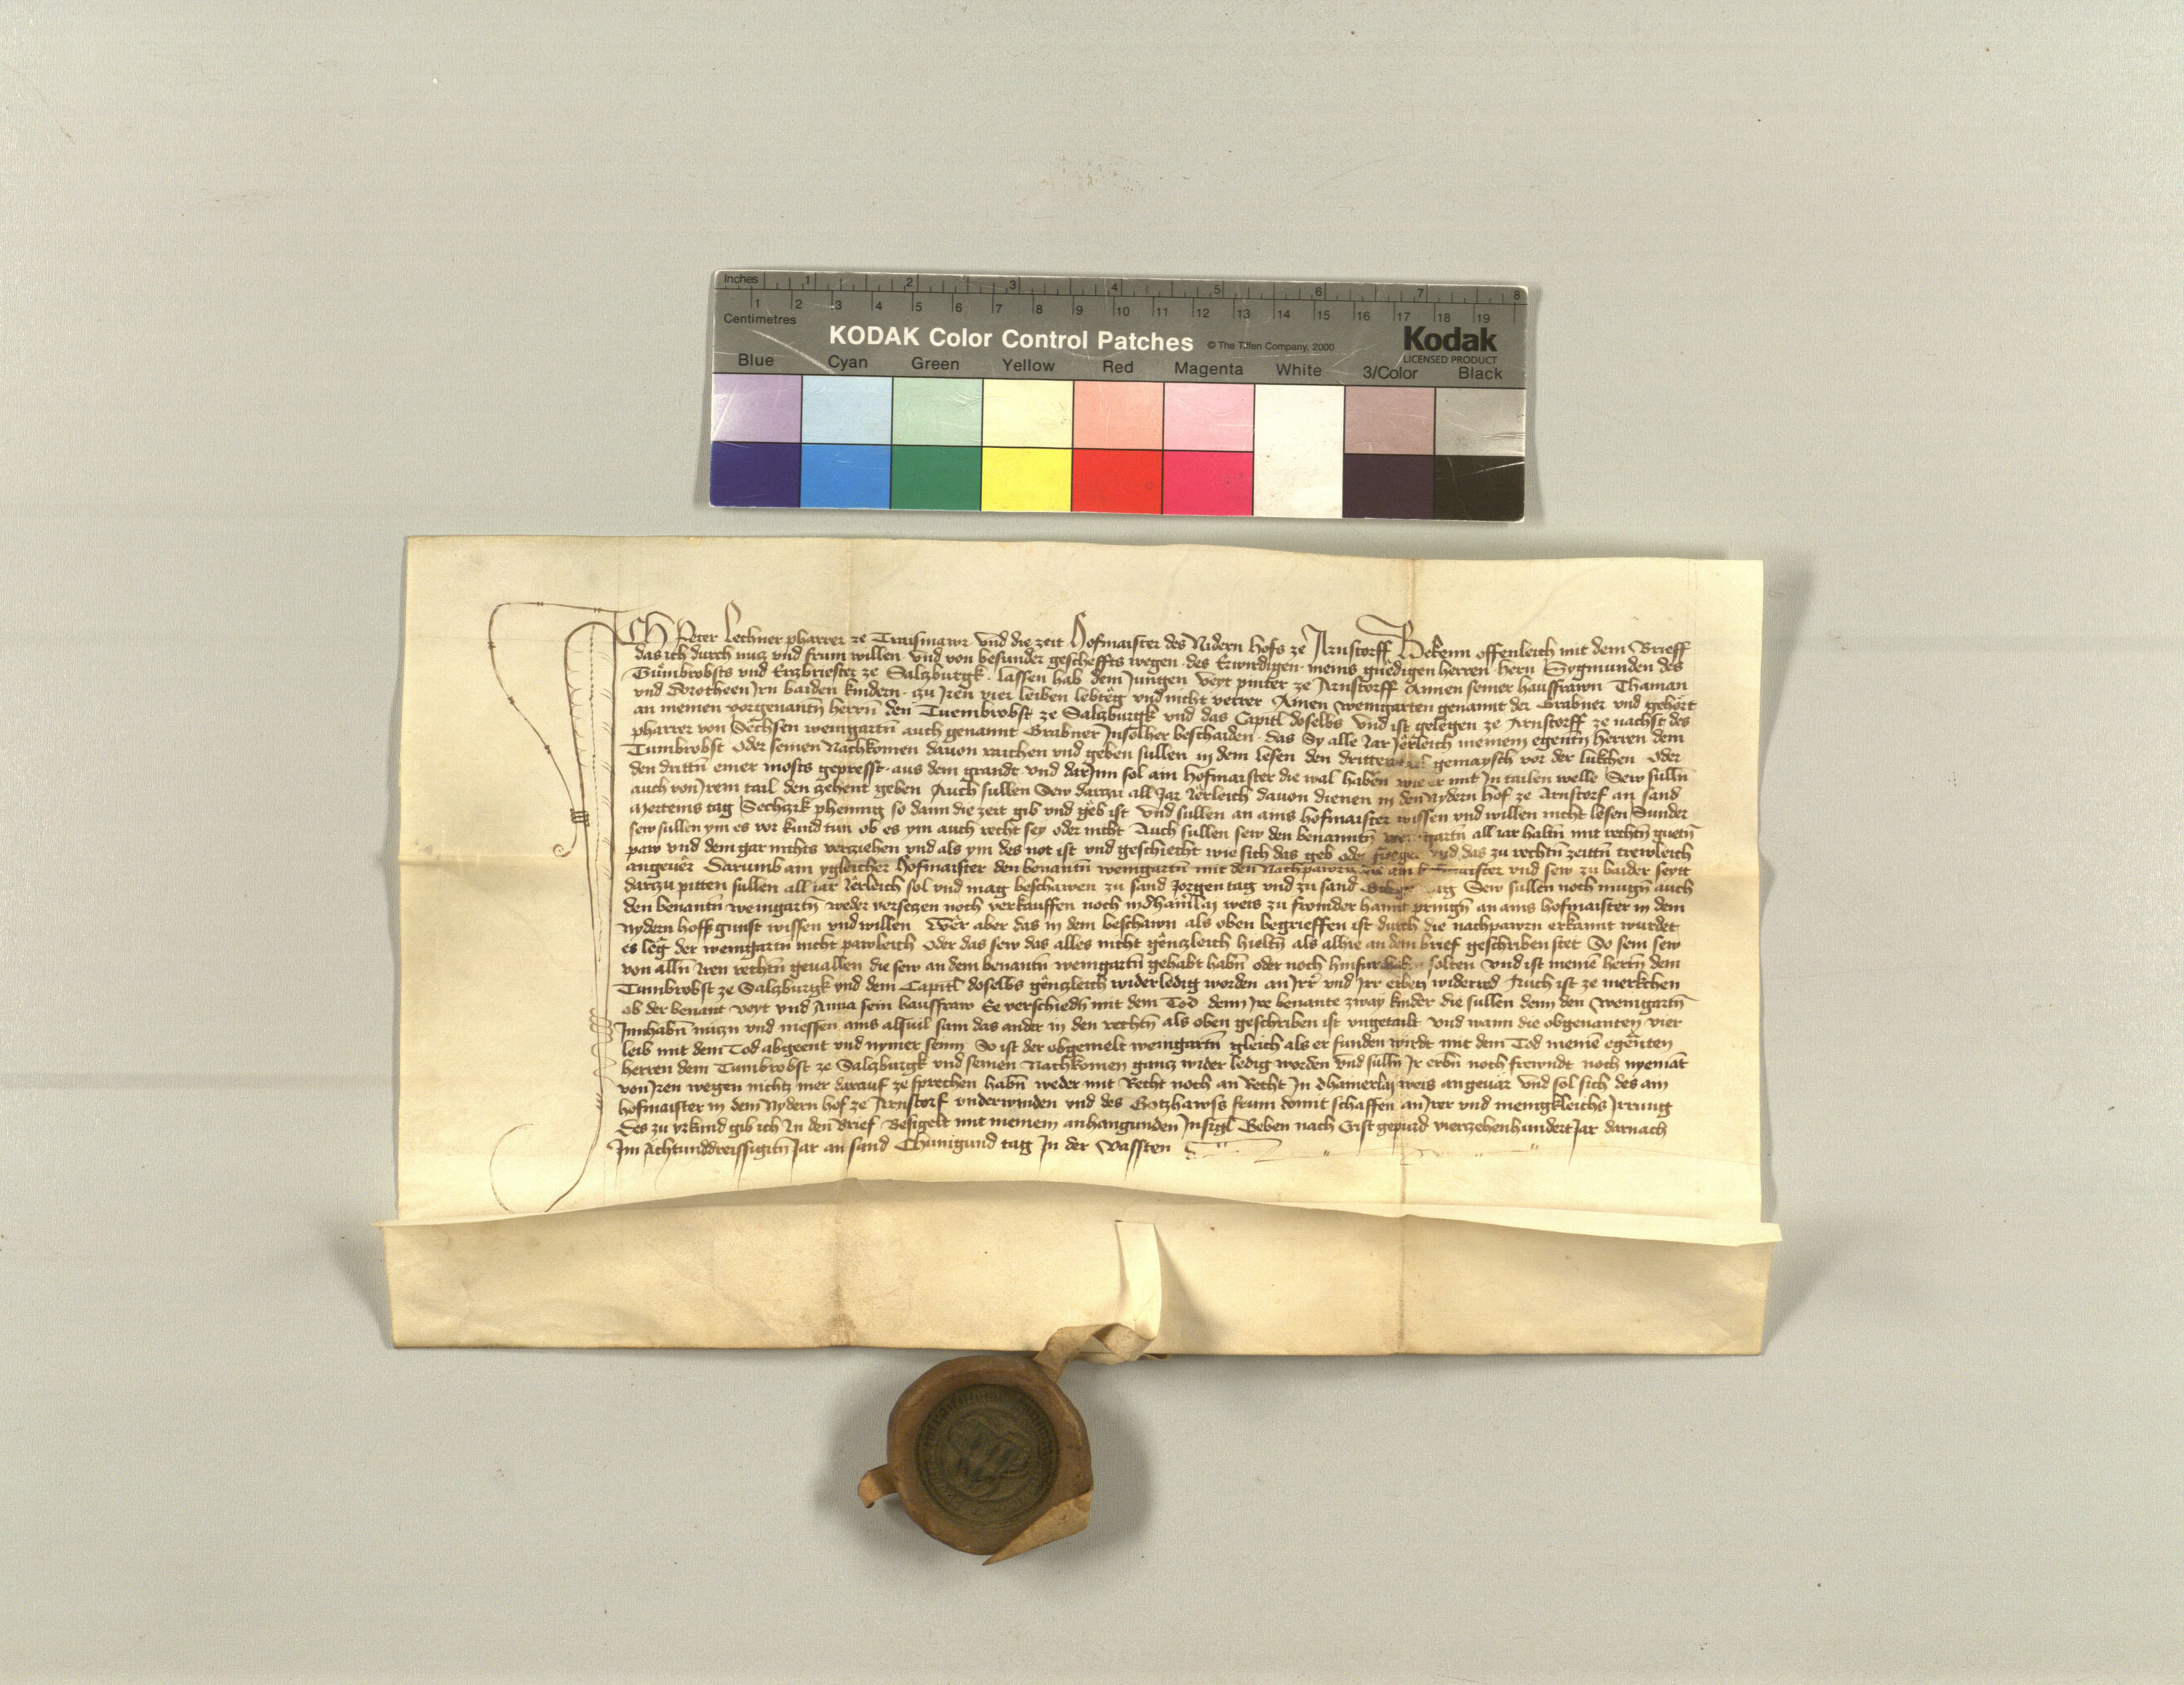 Inches 1 2 3 4 5 6 7 8
1 2 3 4 5 6 7 8 9 10 11 12 13 14 15 16 17 18 19
Centimetres
KODAK Color Control Patches © The Tiffen Company, 2000 Kodak
LICENSED PRODUCT
Blue Cyan Green Yellow Red Magenta White 3/Color Black
Ich Peter Lechner pharrer ze Traismawr vnd die zeit Hofmaister des Nidern Hofs ze Arnstorff Bekenn offenleich mit dem Brieff
das ich durch nucz vnd frum willen vnd von besunder gescheffts wegen des Erwirdigen meins gnedigen herren hern Sygmunden des
Tumbrobsts vnd Erczbriester ze Salczburgk lassen hab dem Jungen Veyt pinter ze Arnstorff Annen seiner hausffrawn Thaman
vnd Dorotheen Irn baiden kindern zu Iren vier leiben lebteg vnd nicht verrer Ainen weingarten genannt der Grabner vnd gehort
an meinen vorgenantn herrn den Tuembrobst ze Salczburgk vnd das Capitl doselbs vnd ist gelegen ze Arnstorff ze nachst des
pharrer von Sechsen weingartn auch genannt Grabner Insolher beschaiden das Sy alle Jar Jerleich meinem egentn herren dem
Tumbrobst oder seinen Nachkomen dauon raichen vnd geben sullen in dem lesen den dritten gemaysch vor der lukchen oder
den drittn emer mosts gepresst aus dem grandt vnd darInn sol ain hofmaister die wal haben wie er mit In tailen welle Sew sulln
auch von Irem tail den zehent geben Auch sullen Sew darczu all Jar Jerleich dauon dienen in den Nydern hof ze Arnstorf an sand
Mertems tag Sechczik phennig so dann die zeit gib vnd geb ist vnd sullen an ains hofmaister wissen vnd willen nicht lesen Sunder
sew sullen ym es vor kund tun ob es ym auch recht sey oder nicht Auch sullen sew den benanntn all iar haltn mit rechtn guetn
paw vnd dem gar nichts verziehen vnd als ym des not ist vnd geschiecht wie sich das geb oder vnd das zu rechtn zeittn trewleich
angeuer Darumb ain ygleicher Hofmaister den benantn weingartn mit den Nachpawrn die ain maister vnd sew zu baider seytt
darczu pitten sullen all iar Jerleich sol vnd mag beschawen zu sand Jorgen tag vnd zu sand tag Sew sullen noch mugn auch
den benantn weingartn weder verseczen noch verkauffen noch in dhainlai weis zu fromder hannt pringn an ains hofmaister in dem
Nydern hoff gunst wissen vnd willen Wer aber das in dem beschawn als oben begrieffen ist durch die nachpawrn erkannt wurdet
es leg der weingartn nicht pawleich oder das sew das alles nicht genczleich hieltn als alhie an dem brief geschriben stet So sein sew
von alln Iren rechtn geuallen die sew an dem benantn weingartn gehabt habn oder noch hinfur solten vnd ist meinem herrn dem
Tumbrobst ze Salczburgk vnd dem Capitl doselbs genczleich widerledig worden an Irr vnd Irr erben widerred Auch ist ze merkchen
ob der benant Veyt vnd Anna sein hausffraw Ee verschiedn mit dem Tod denn Ire benante zway kinder die sullen denn den weingartn
Innhabn nuczn vnd niessen ains alsuil sam das ander in den rechtn als oben geschriben ist vngetailt vnd wann die obgenanten vier
leib mit dem Tod abgeent vnd nymer seinn So ist der obgemelt weingartn gleich als er funden wirdt mit dem Tod meinem egenten
herren dem Tumbrobst ze Salczburgk vnd seinen Nachkomen gancz wider ledig worden vnd sulln Ir erbn noch frewndt noch nyemat
von Iren wegen nichtz mer darauf ze sprechen habn weder mit Recht noch an Recht In dhainerlai weis angeuar vnd sol sich des ain
hofmaister in dem Nydern hof ze Arnstorf vnderwinden vnd des Gotzhawss frum domit schaffen an Irer vnd menigkleichs Irrung
Des zu vrkund gib ich In den brief Besigelt mit meinem anhangunden Insigl Geben nach Crist gepurd vierzehenhundert Jar darnach
Im Achtunddreissigitn Jar an sand Chunigund tag In der Vassten